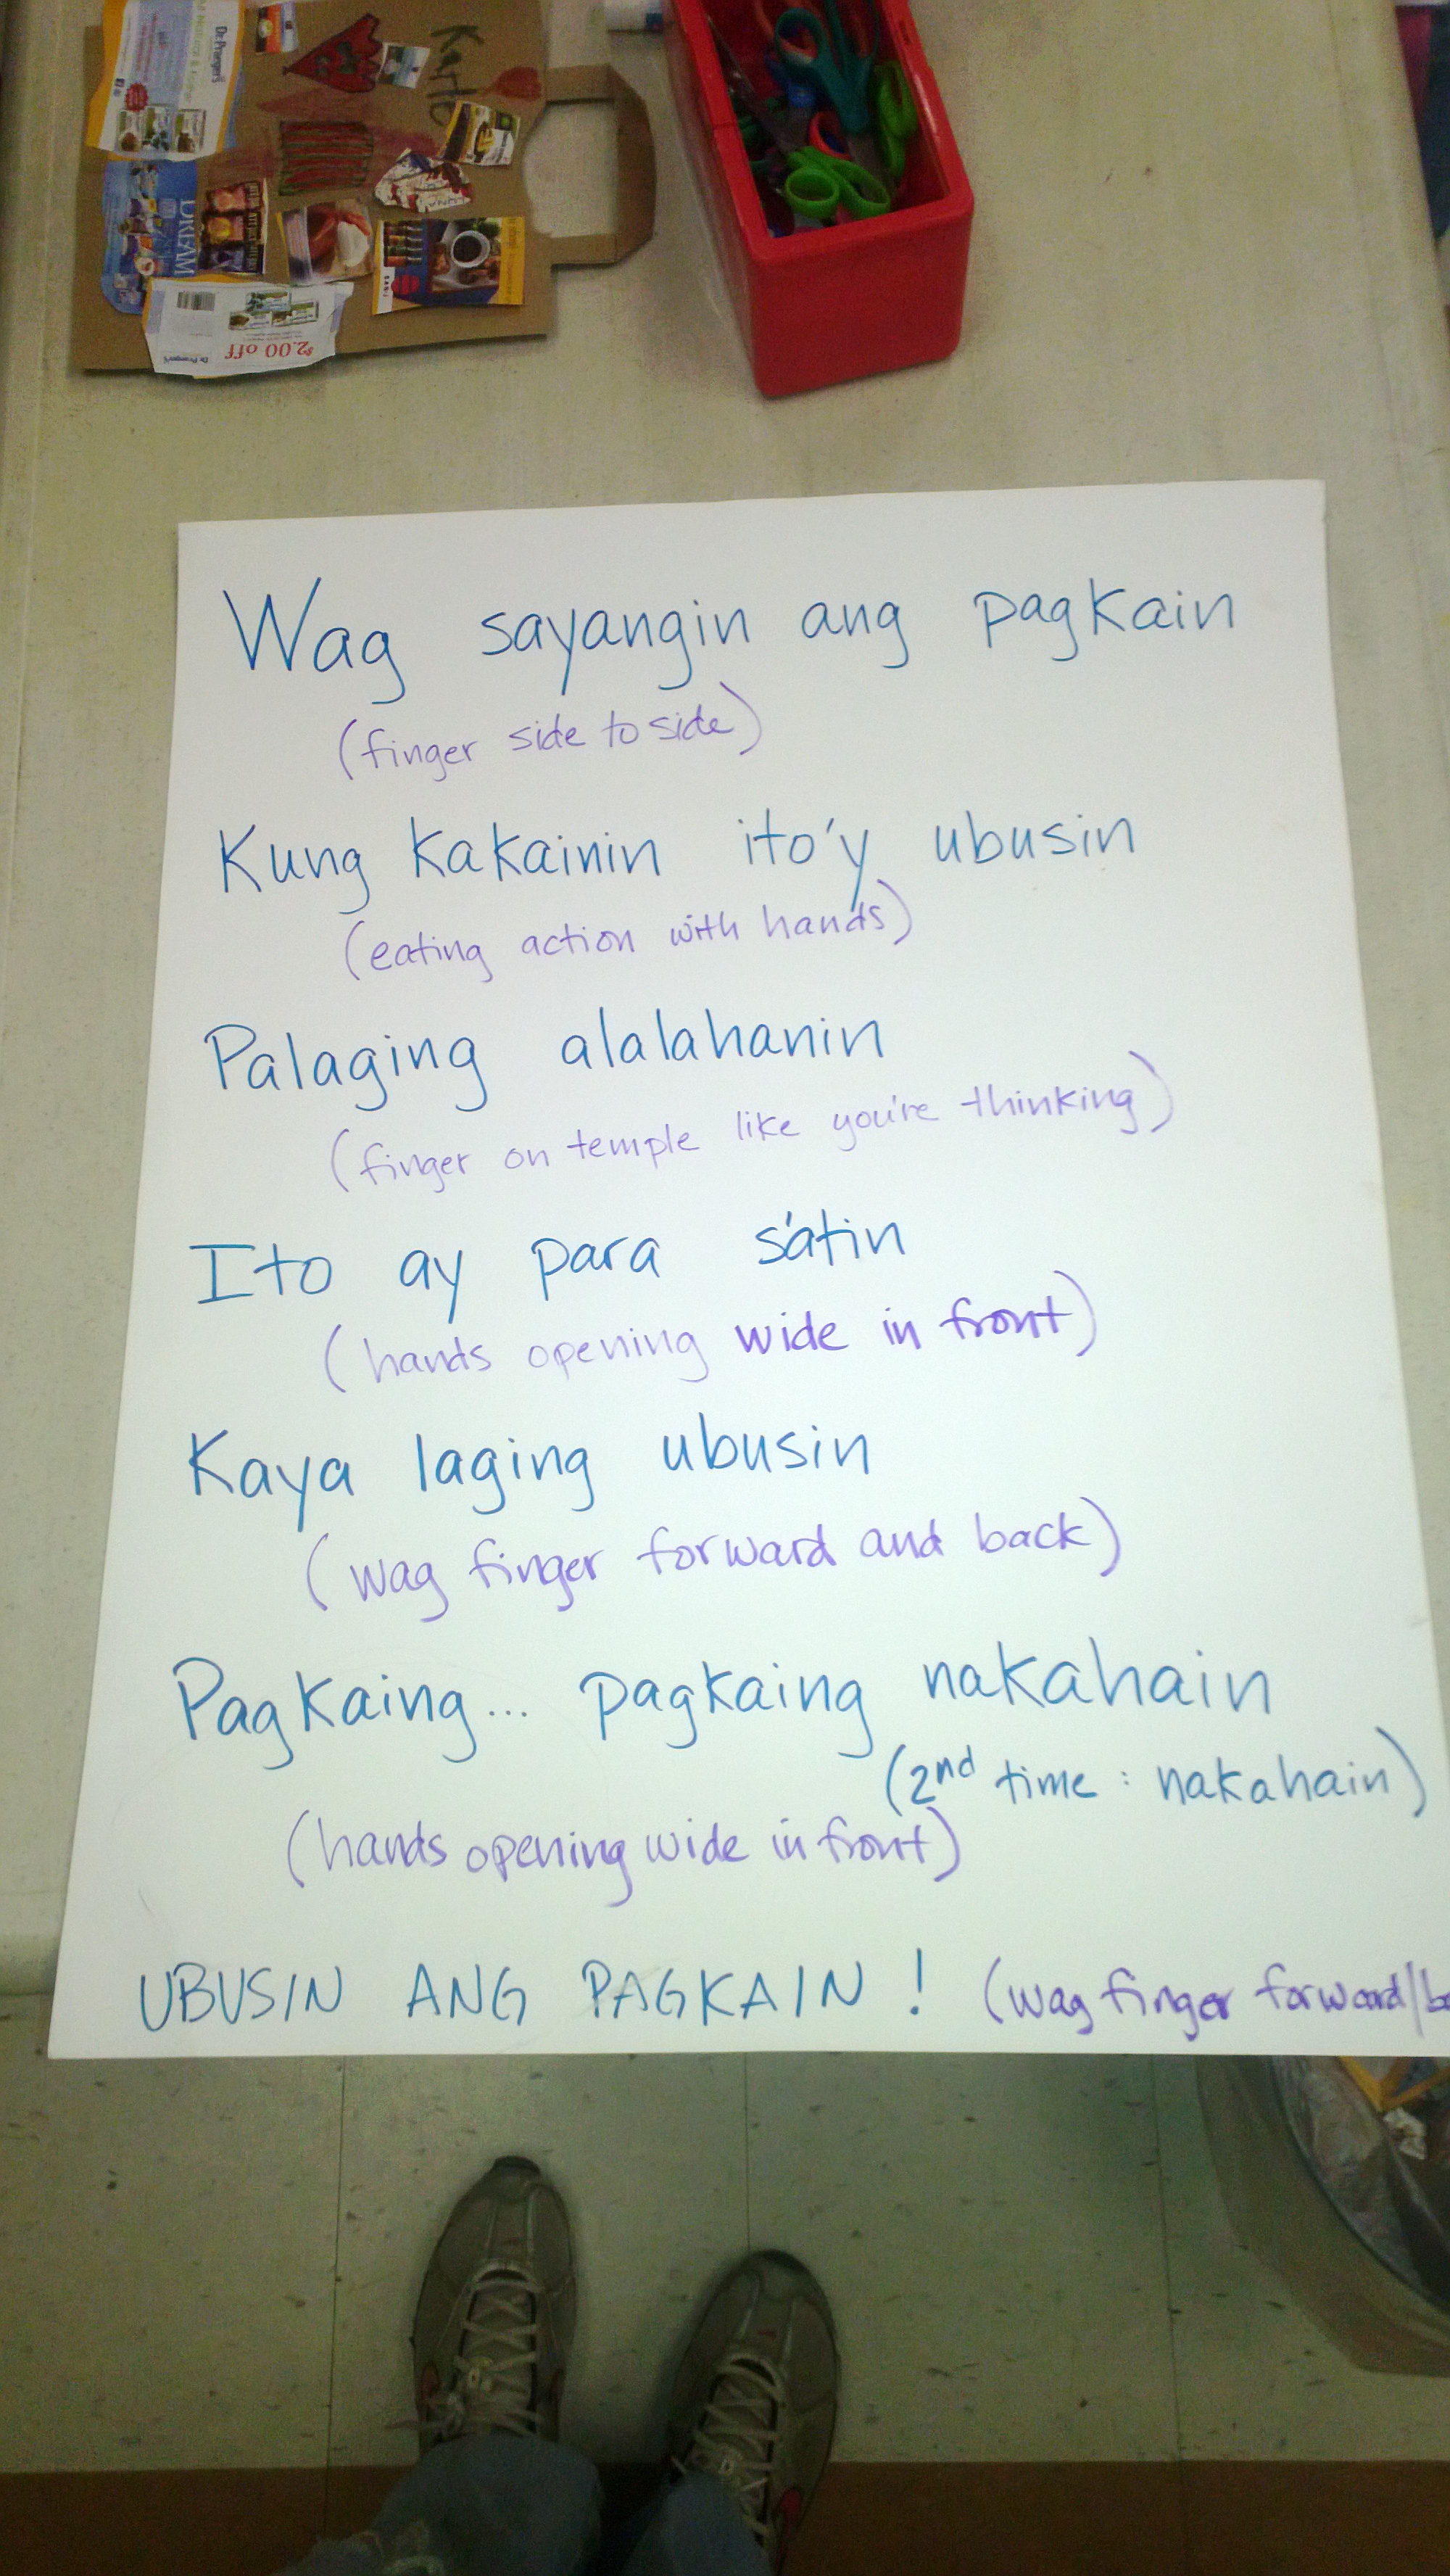 Karlo
Dr. Praeger's
DREAM
LUNA
$2.00 off
Dr. Praeger's
Wag sayangin ang pagkain
(finger side to side)
Kung kakainin ito'y ubusin
(eating action with hands)
Palaging alalahanin
(finger on temple like you're thinking)
Ito ay para s'atin
(hands opening wide in front)
Kaya laging ubusin
(wag finger forward and back)
Pagkaing... pagkaing nakahain
(2nd time: nakahain)
(hands opening wide in front)
UBUSIN ANG PAGKAIN! (wag finger forward/